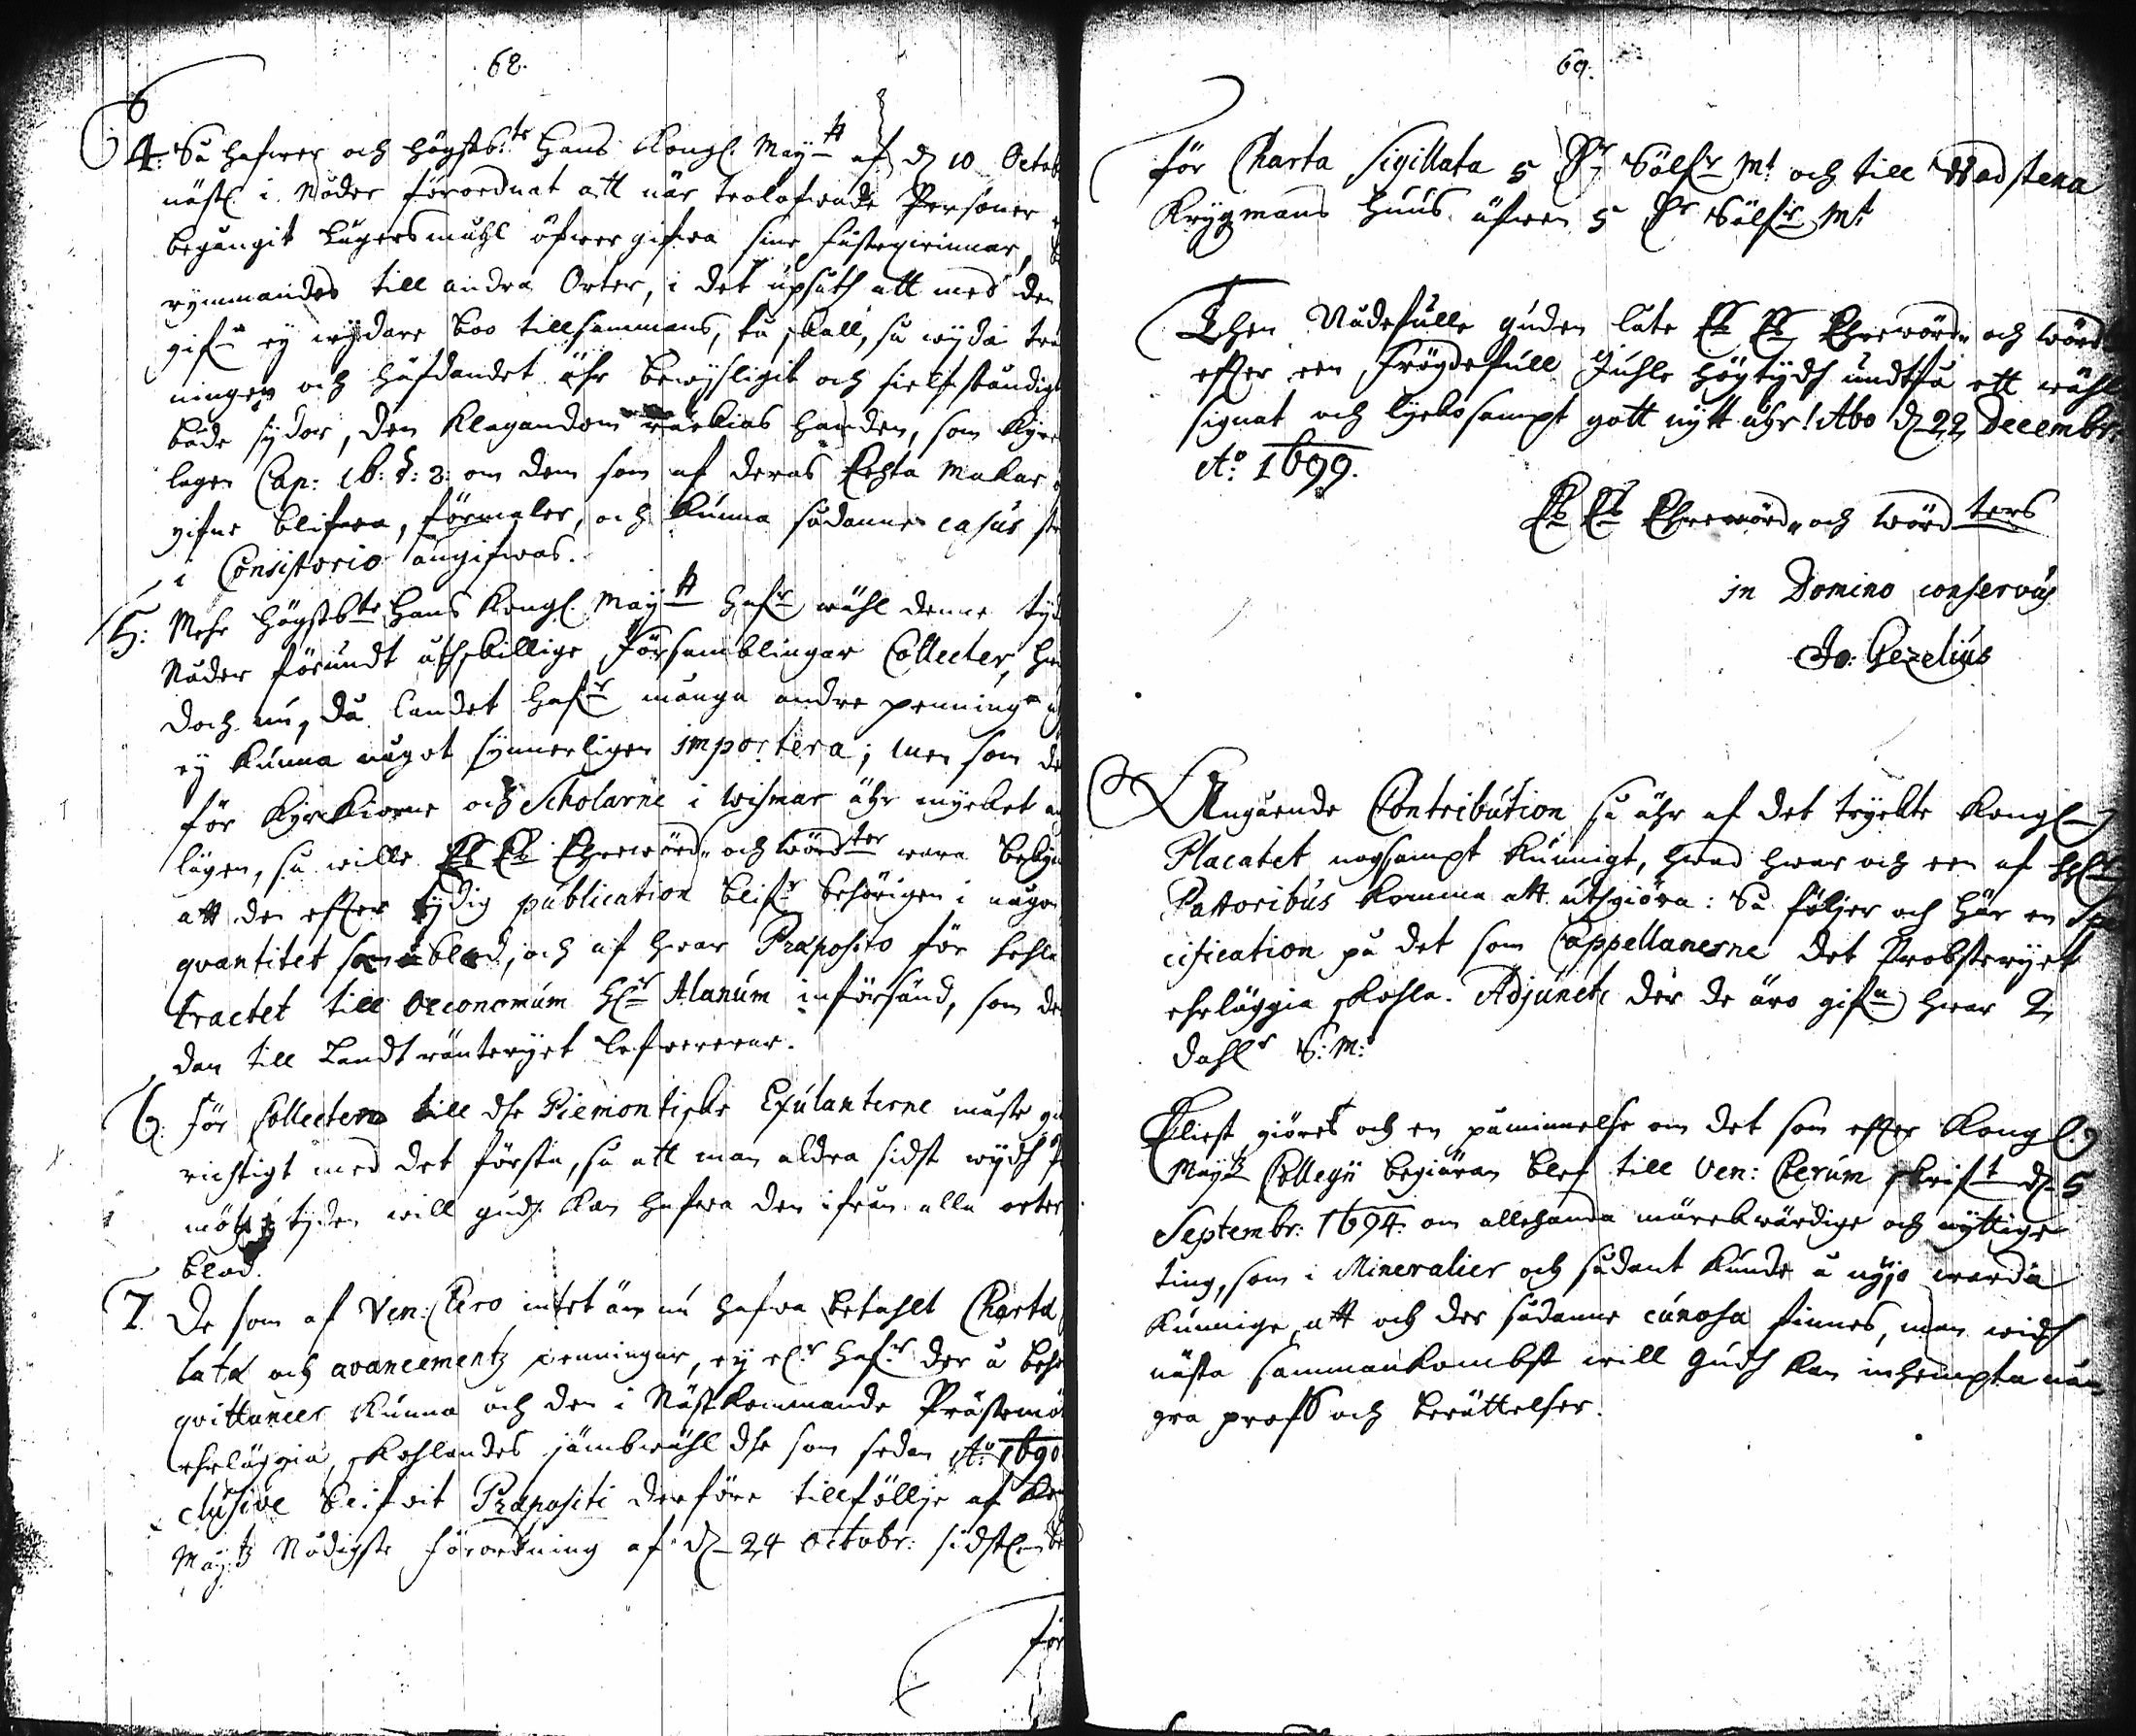 68.
4. Så hafwer och högstb:te Hans Kongl. Maij:tt af d 10 Octob
näst i Nåder förordnat att när trolofwade Persone
begångit Lägersmåhl öfwergifwa sine fästeqwinnor,
rymmandes till andra Orter, i det upsåth att med den
gifn ey wijdare boo tillsammans, då skall, så wijda tro
ningen och häfdandet ähr bewijsligit och sielfständigt
både sydor, den klagandom räckias handen, som Kyrc
lagen Cap: 16: §: 3: om dem som af deras Echta Makar
gifne blifwa, förmaler, och kunna sådanne casus
i Consistorio angifwas.
5: Mehr högstb:te Hans Kongl. Maij:tt hafr wähl denne tijd
Nåder förundt åthskillige Församblingar Collecter,
doch nu, då landet hafr många andre penning
ey kunna något synnerligen importera; men som de
för Kyrkiorne och Scholarne i Wismar ähr mycket an
lägen, så wille Eb Eb Ehrewörd„ och Wörd:ter wara
att den efter tydig publication blifr behörigen i någon
qvantitet samblad, och af hwar Præposito för hehla
tractet till Oeconomum H:r Alanum införsänd, som de
dan till Landtränteryet lefwererar.
6. För Collecten till dhe Piemontiske Exulanterne måste
richtigt med det första, så att man aldra sidst wydh P
mötz tyden will gudh kan hafwa den ifrån alla orter
blad.
7. De som af Ven: Clero intet än nu hafwa betahlt Charta
lata och avancementz penningar, ey el:r hafr der å beh
qvittancer kunna och den i Nästkommande Prästemö
ehrläggia, skohlandes jämbwähl dhe som sedan A:o 1690
clusive blifwit Præpositi derföre tillföllje af Ko
Maij:tz Nådigste förordning af d 24 Octobr: sidstl
för
69.
för Charta Sigillata 5 Dr Sölfr M:t och till Wadstena
Krygmans huus äfwen 5 Dr Sölfr M:t
Then Nådefulle guden late Eb Eb Ehrewörd„ och Wörd
efter een frögdefull Juhle högtydh undfå ett wähl
signat och lyckosampt gott nytt åhr! Abo d 22 Decembr:
A:o 1699.
Eb Eb Ehrewörd„ och Wörd ters
in Domino conservus
Jo: Gezelius
Angående Contribution så ähr af det tryckte Kongl
Placatet nogsampt kunnigt, hwad hwar och een af H:r
Pastoribus komma att uthgiöra: Så följer och här en Spe
cification på det som Cappellanerne det Probsteryet
ehrläggia skohla. Adjuncti där de äro gifn hwar 2
dahl:r S: M:
Eliest giöres och en påminnelse om det som efter Kongl.
Maij:tz Collegii begiäran blef till Ven: Clerum skrift d 5
Septembr: 1694. om allehanda märckwärdige och nyttige
ting, som i Mineralier och sådant kunde å nyjo warda
kunnige att och der sådanne curiosa finnes, man widh
nästa sammankombst will Gudh kan inhempta nå
gra prof och berättelser.